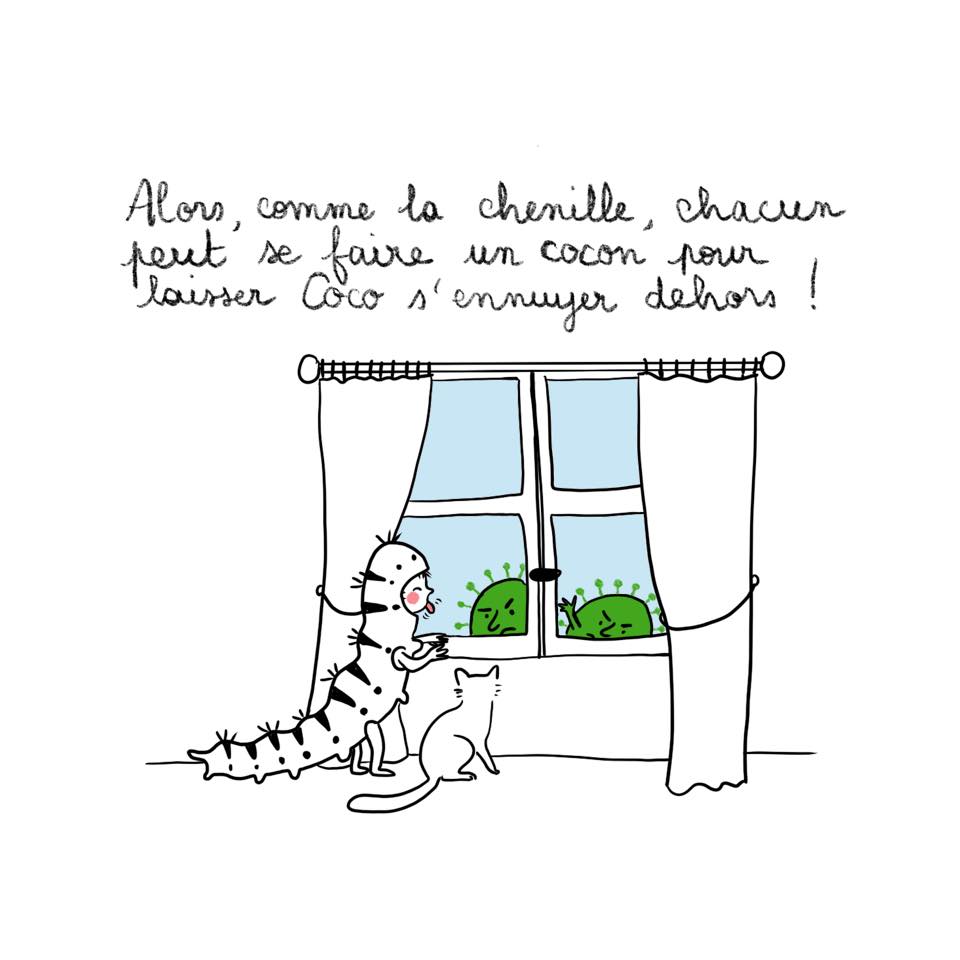 Alors, comme la chenille, chacun
peut se faire un cocon pour
laisser Coco s'ennuyer dehors !